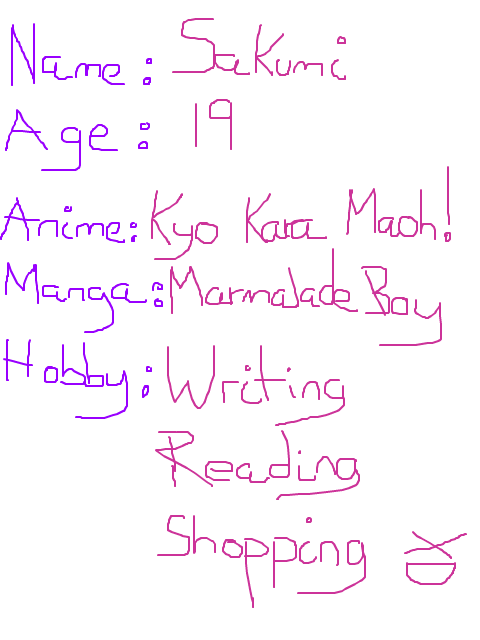 Name: Sakumi
Age: 19
Anime: Kyo Kara Maoh!
Manga: Marmalade Boy
Hobby: Writing
Reading
Shopping